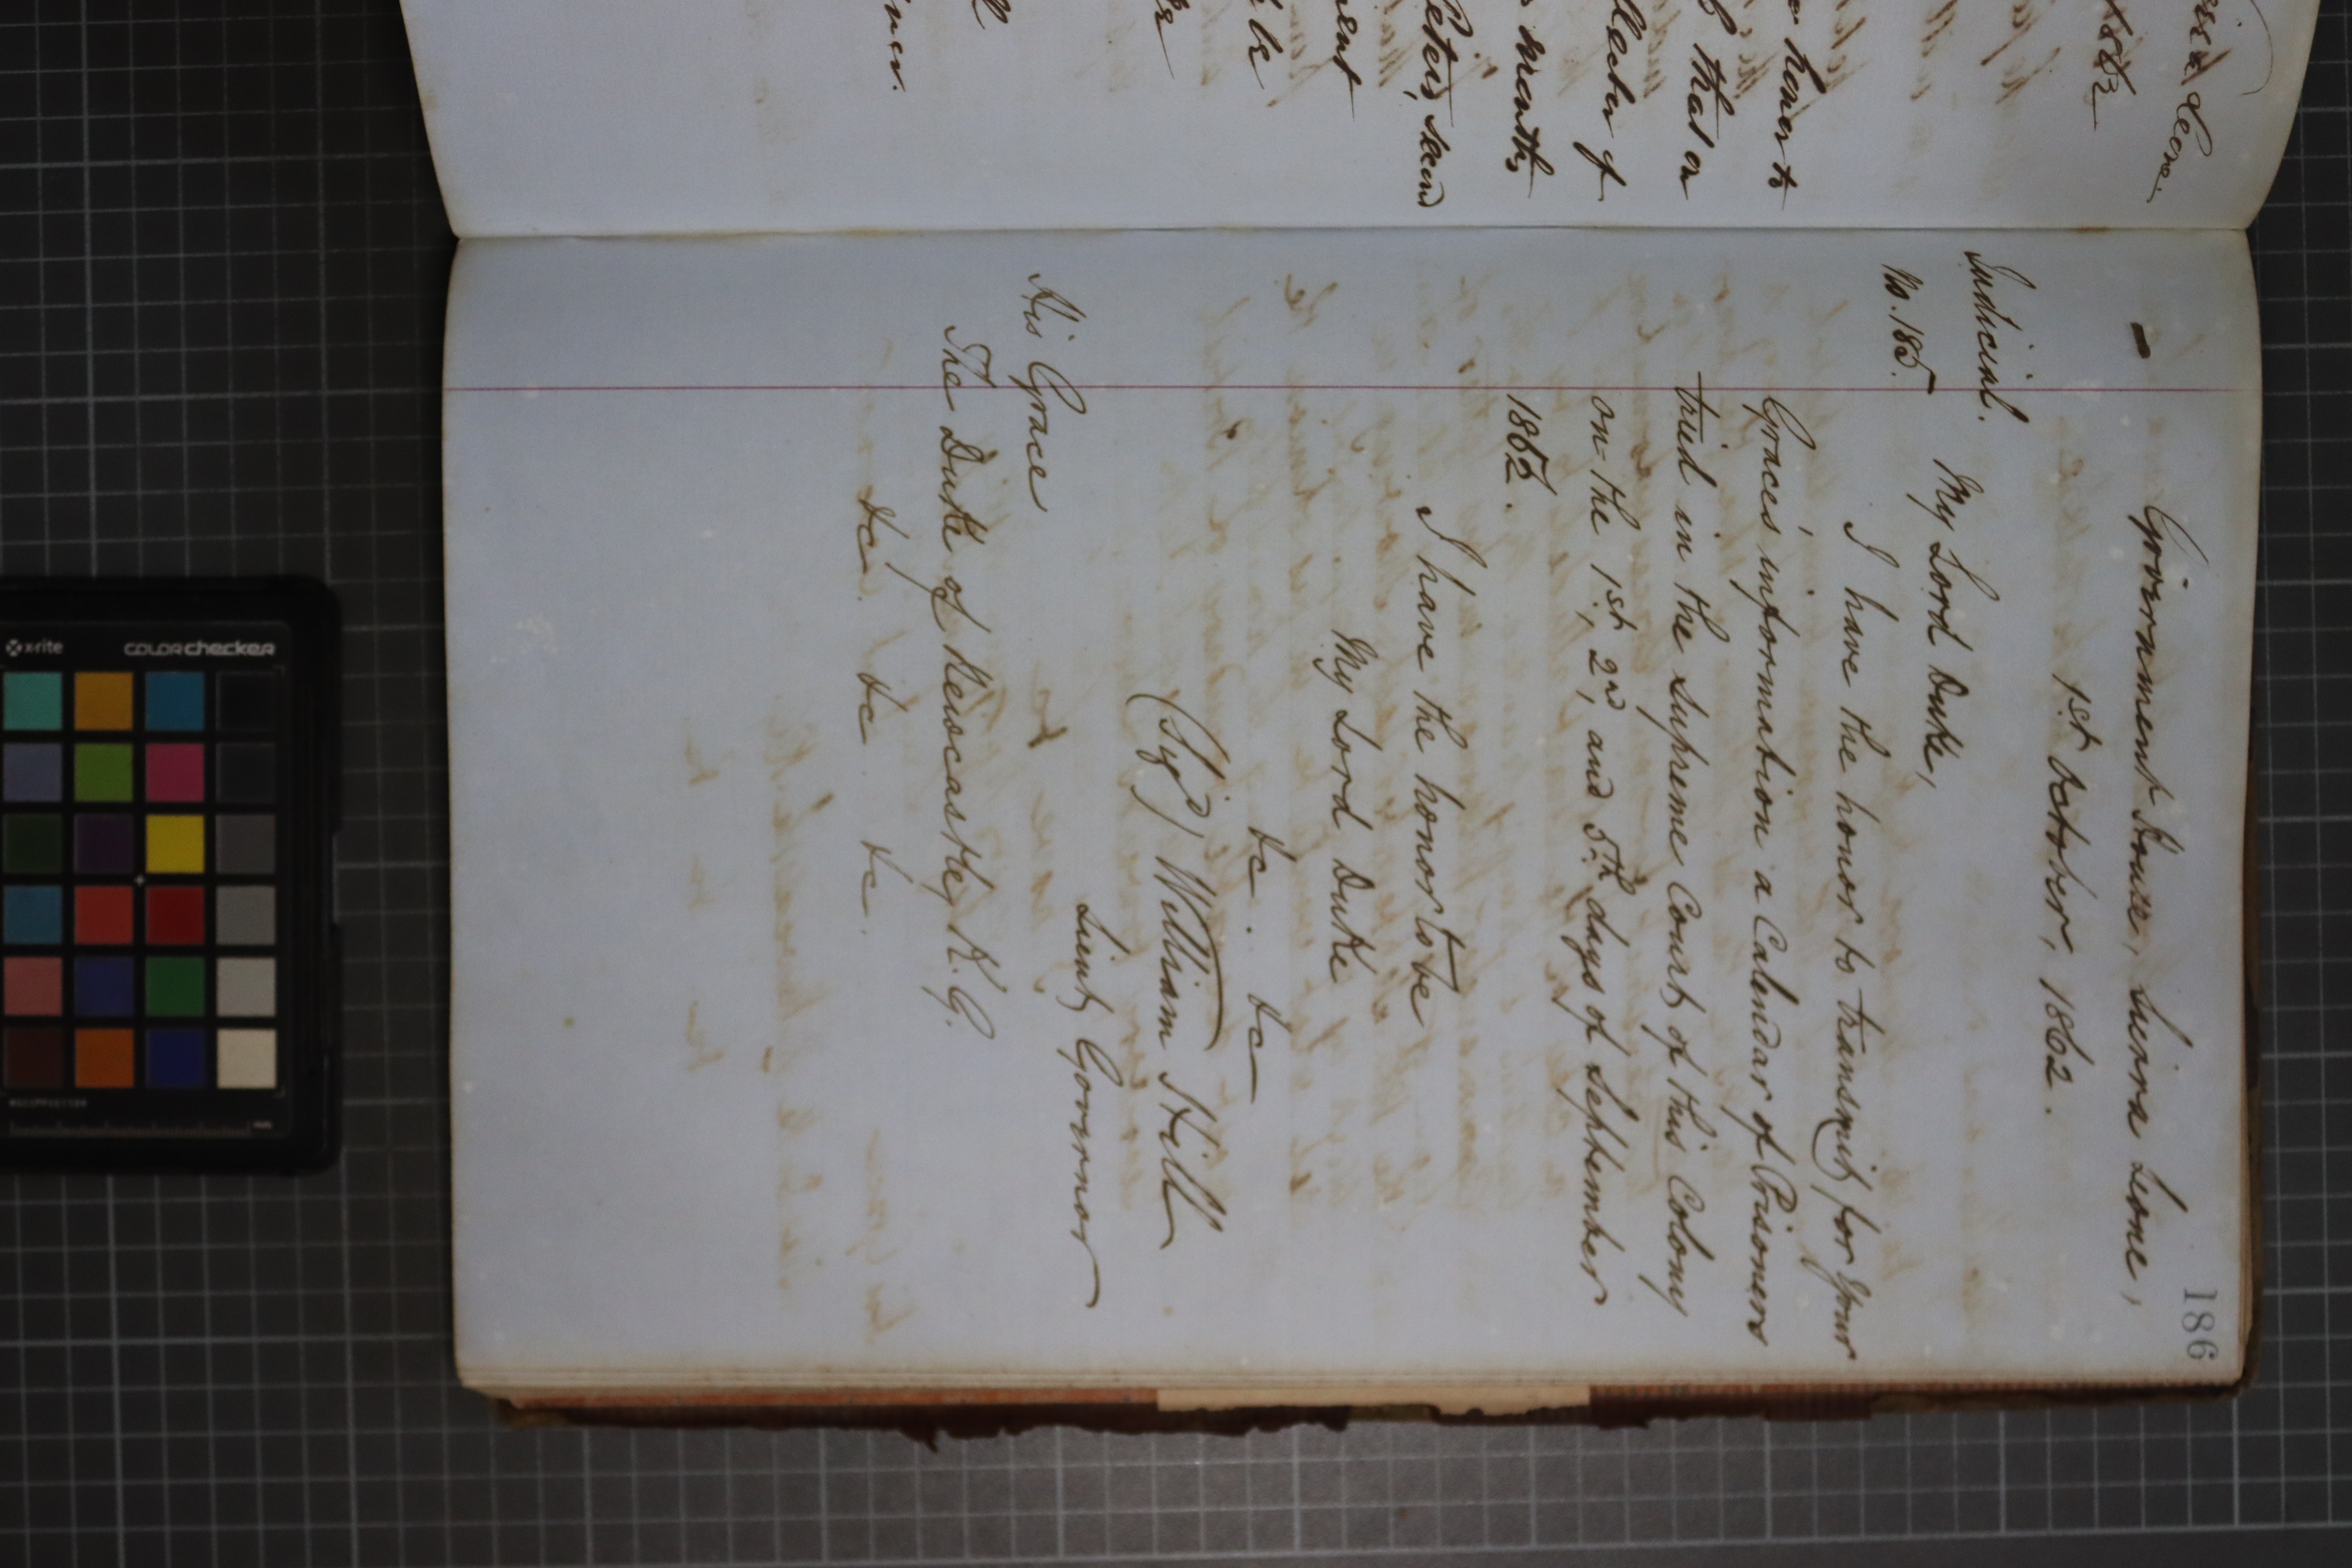 186
Government House, Sierra Leone,
1st October, 1862.
Judicial.
No. 185.
My Lord Duke,
I have the honor to transmit, for Your
Grace's information a Calendar of Prisoners
tried in the Supreme Court, of this Colony
on the 1st, 2nd, and 5th days of September
1862.
I have the honor to be
My Lord Duke
&c. &c
(Sigd) William Hill
Lieut. Governor
His Grace
The Duke of Newcastle, K.G.
&c. &c &c.
Leone.
1862
honor to
that on
of
months,
Peters,
be
x-rite
colorchecker